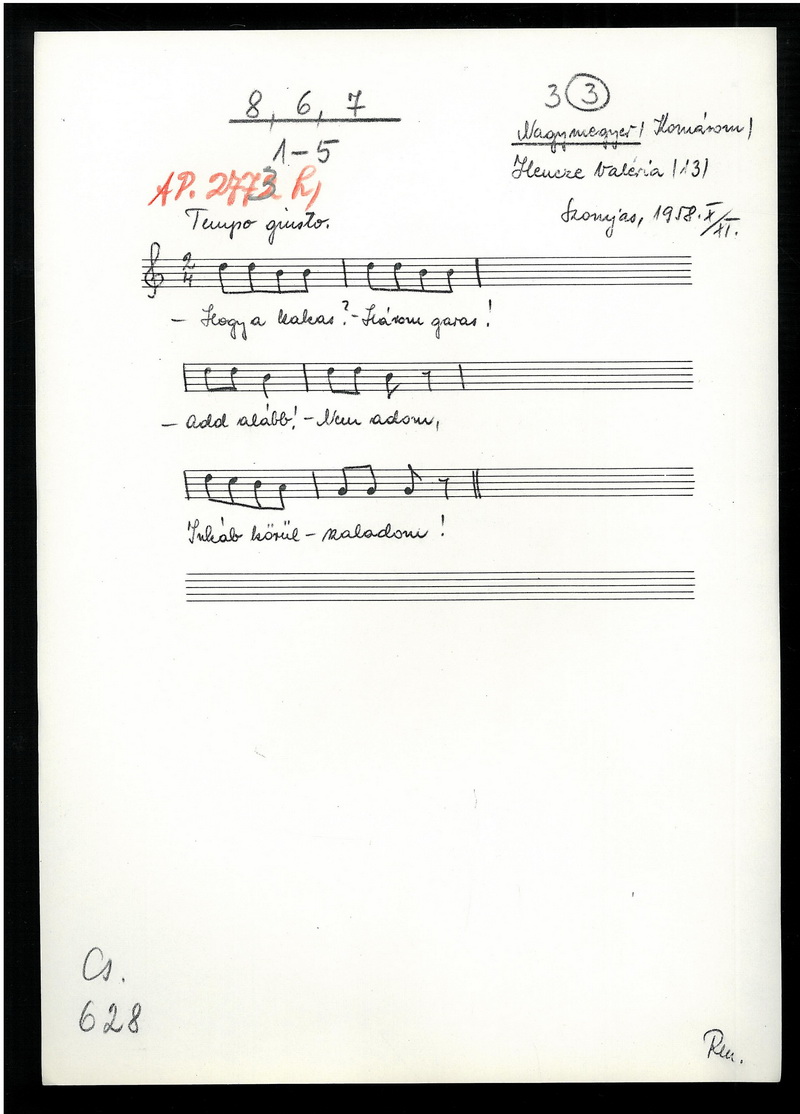 8, 6, 7
3 3
1-5
Nagymegyer / Komárom /
AP. 2773
Valéria /13/
Tempo giusto.
1958. X/XI.
2 4
– Hogy a kakas? - Három garas!
– Add alább! - Nem adom,
Inkáb körül - szaladom!
Cs.
628